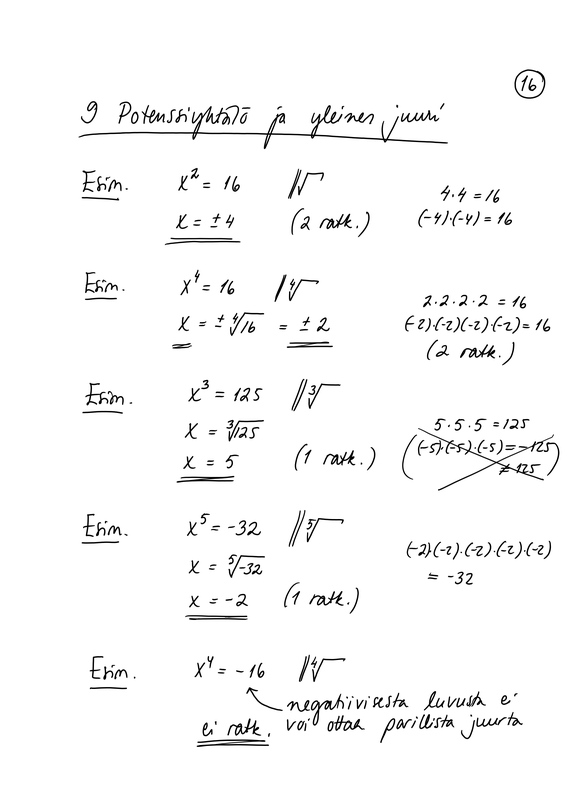 16
9 Potenssiyhtälö ja yleinen juuri
Esim. x² = 16 ‖√
x = ±4 (2 ratk.)
4·4 = 16
(-4)·(-4) = 16
Esim. x⁴ = 16 ‖⁴√
x = ±⁴√16 = ±2
2·2·2·2 = 16
(-2)·(-2)(-2)·(-2) = 16
(2 ratk.)
Esim. x³ = 125 ‖³√
x = ³√125
x = 5 (1 ratk.)
5·5·5 = 125
((-5)·(-5)·(-5) = -125
≠ 125)
Esim. x⁵ = -32 ‖⁵√
x = ⁵√-32
x = -2 (1 ratk.)
(-2)·(-2)·(-2)·(-2)·(-2)
= -32
Esim. x⁴ = -16 ‖⁴√
negatiivisesta luvusta ei
voi ottaa parillista juurta
ei ratk.